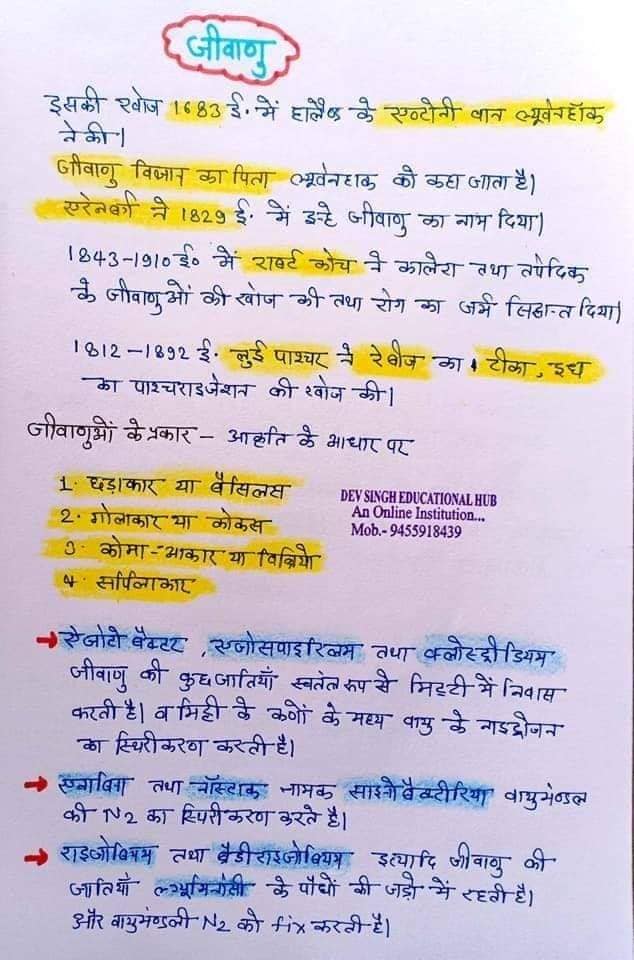 जीवाणु
इसकी खोज 1683 ई. में हालैण्ड के एण्टोनी वान ल्यूवेनहॉक
ने की।
जीवाणु विज्ञान का पिता ल्यूवेनहाक को कहा जाता है।
एरेनबर्ग ने 1829 ई. में इन्हे जीवाणु का नाम दिया।
1843-1910 ई० में राबर्ट कोच ने कालेरा तथा तपेदिक
के जीवाणुओं की खोज की तथा रोग का जर्म सिद्धान्त दिया।
1812-1892 ई. लुई पाश्चर ने रेबीज का टीका, दूध
का पाश्चराइजेशन की खोज की।
जीवाणुओं के प्रकार - आकृति के आधार पर
1. छड़ाकार या बैसिलस
2. गोलाकार या कोकस
3. कोमा-आकार या विब्रियो
4. सर्पिलाकार
DEV SINGH EDUCATIONAL HUB
An Online Institution...
Mob.- 9455918439
→ एजोटोबैक्टर, एजोसपाइरिलम तथा क्लोस्ट्रीडियम
जीवाणु की कुछ जातियाँ स्वतंत रूप से मिट्टी में निवास
करती है। व मिट्टी के कणों के मध्य वायु के नाइट्रोजन
का स्थिरीकरण करती है।
→ एनाबिना तथा नॉस्टाक नामक साइनोबैक्टीरिया वायुमण्डल
की N2 का स्थिरीकरण करते है।
→ राइजोबियम तथा ब्रैडीराइजोबियम इत्यादि जीवाणु की
जातियाँ लेग्यूमिनोसी के पौधों की जड़ो में रहती है।
और वायुमण्डली N2 को fix करती है।